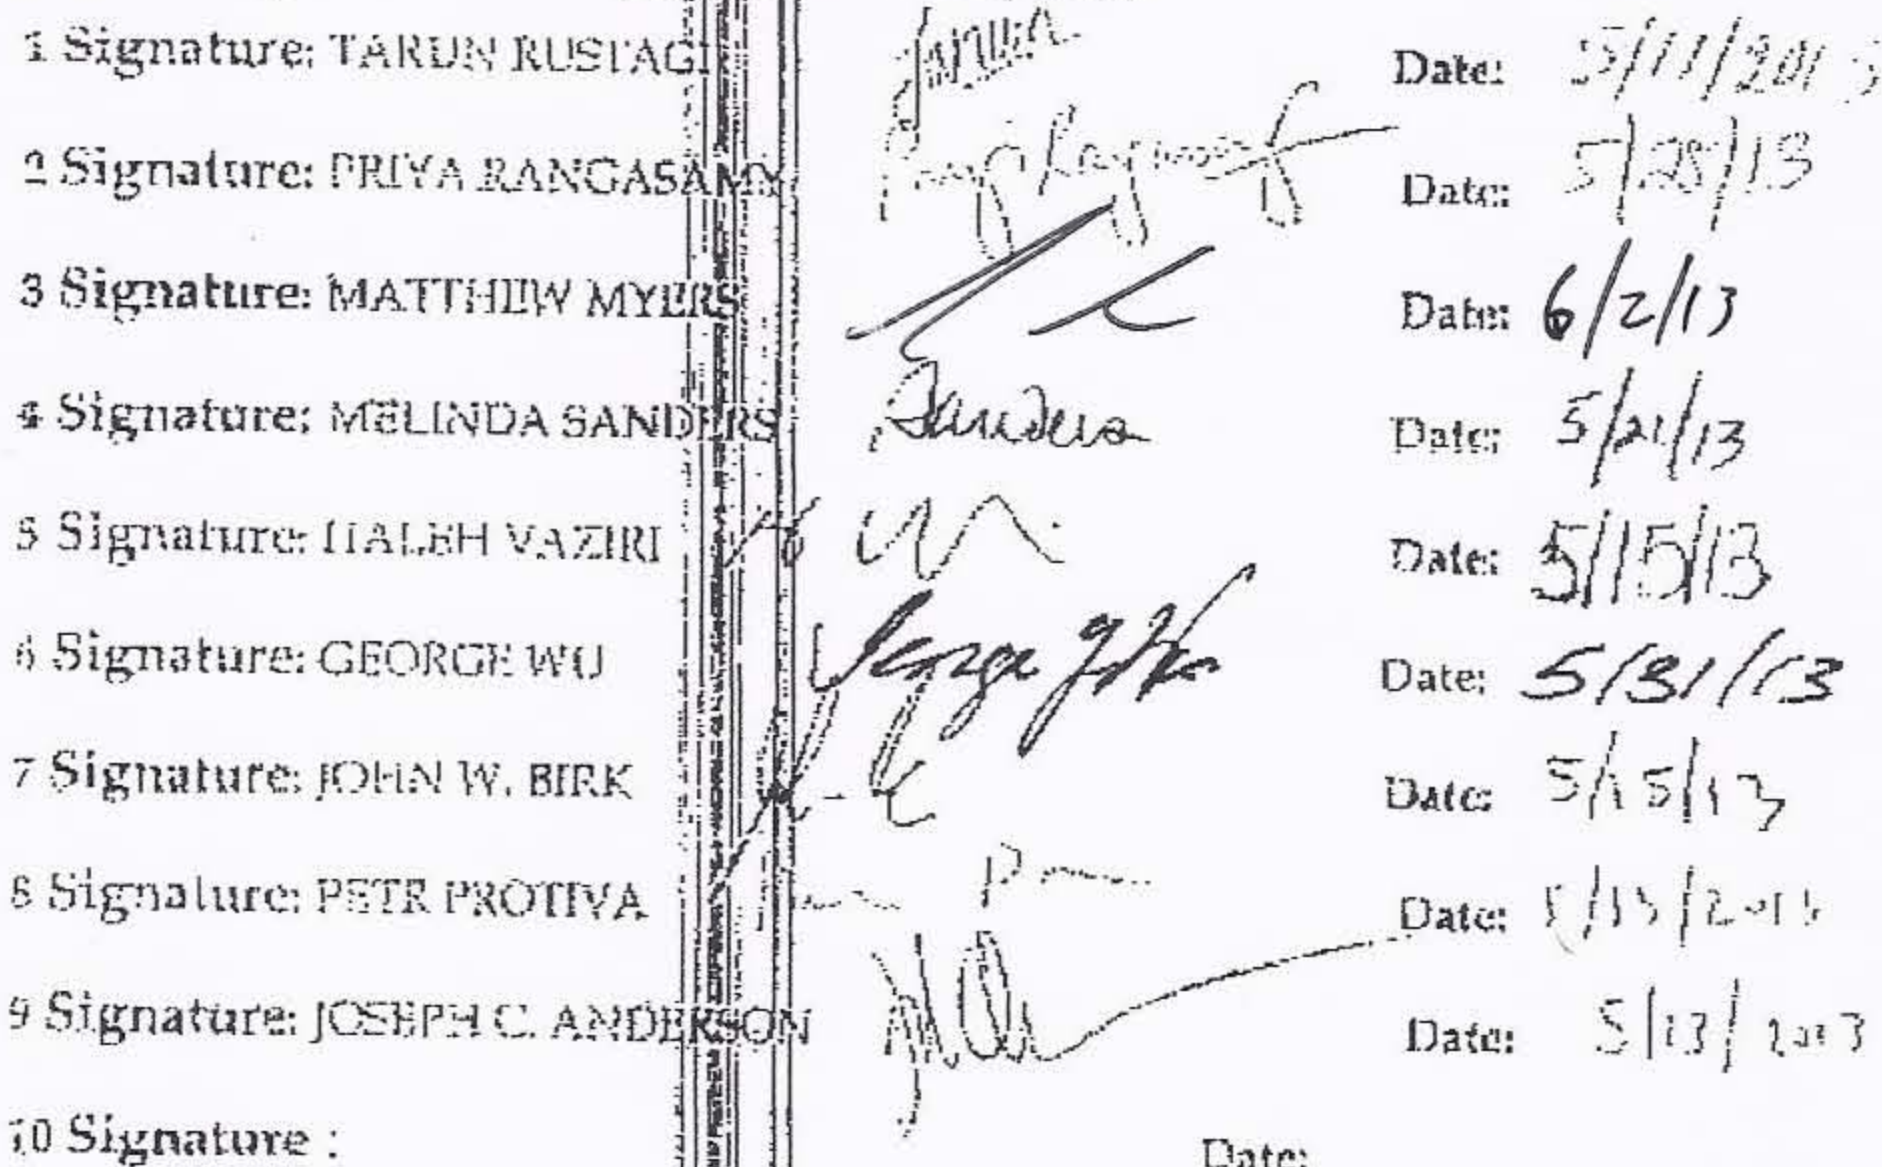 1 Signature: TARUN RUSTAGI Date: 5/11/2013
2 Signature: PRIYA RANGASAMY Date: 5/28/13
3 Signature: MATTHEW MYERS Date: 6/2/13
4 Signature: MELINDA SANDERS Sanders Date: 5/21/13
5 Signature: HALEH VAZIRI Date: 5/15/13
6 Signature: GEORGE WU George Y Wu Date: 5/31/13
7 Signature: JOHN W. BIRK Date: 5/15/13
8 Signature: PETR PROTIVA Date:
9 Signature: JOSEPH C. ANDERSON Date: 5/13/2013
10 Signature : Date: